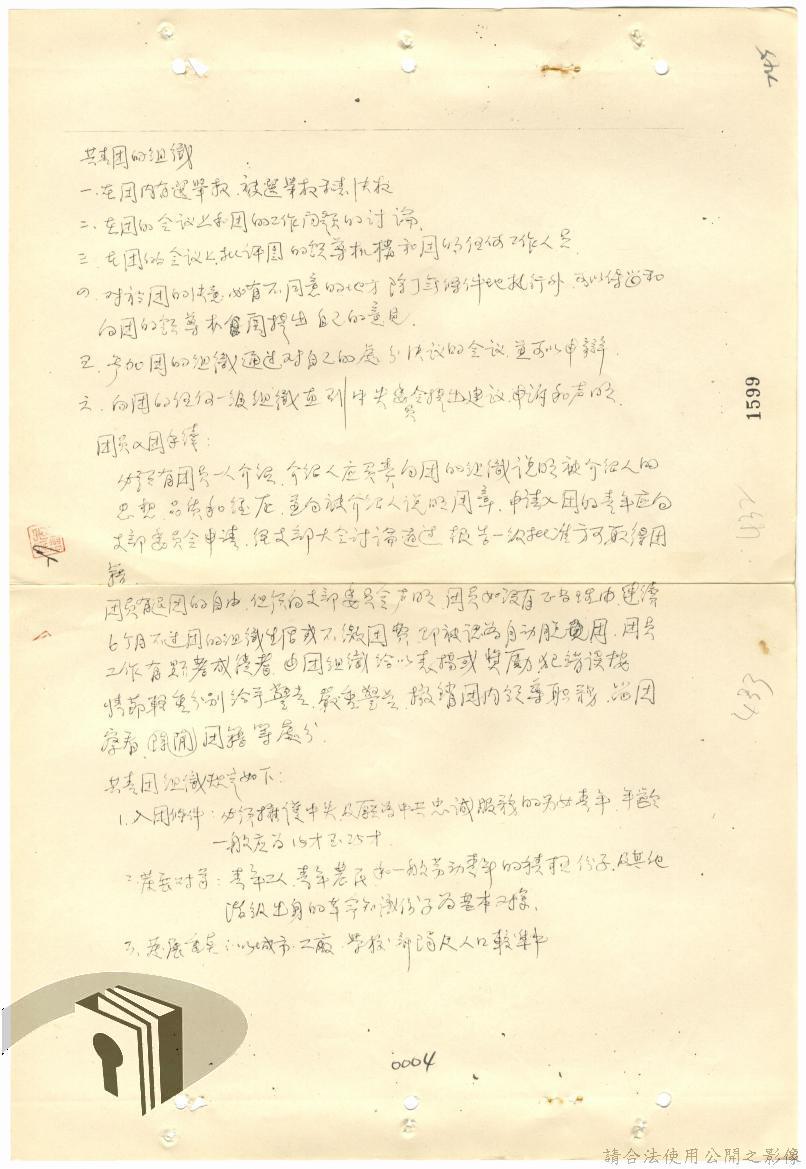 共青团的组織
一.在团内有選举权.被選举权和表决权
二.在团的会议上和团的工作问题的讨論.
三.在团的会议上批评团的領导机構和团的任何工作人員.
四.对於团的决意如有不同意的地方除了無條件地执行外.可以保留和
向团的領导机関提出自己的意見.
五.参加团的组織通过对自己的處分决议的会议.並可以申辯.
六.向团的任何一级组織直到中央委員会提出建议.申诉和声明.
团员入团手续:
必須有团员一人介绍.介绍人应負責向团的组織说明被介绍人的
思想.品质和经历.並向被介绍人说明团章.申请入团的青年应向
支部委员会申请.经支部大会讨論通过.报告一级批准方可取得团
籍.
团员有退团的自由.但須向支部委员会声明.团员如没有正当理由.連續
6个月不过团的组織生活或不缴团費.即被認為自动脱团.团员
工作有顕著成績者.由团组織给以表揚或獎励.犯错误按
情節輕重分别给予警告.嚴重警告.撤銷团内領导职務.留团
察看.開除团籍等處分.
共青团组織規定如下:
1.入团條件:必須擁護中央及願為中共忠诚服務的男女青年.年齡
一般应為15才至25才.
二.發展对象:青年工人.青年農民和一般劳动青年的積極份子.及其他
階级出身的革命知識份子為基本对像.
三.發展重点:以城市.工廠.学校.部隊及人口較集中
1599
433
0004
請合法使用公開之影像